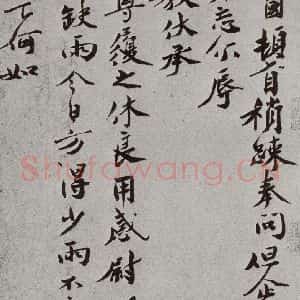 國頓首稍踈奉問但企
辱
教伏承
尊履之休良用感尉
缺雨今日方得少雨不
何如
Shufawang.cn